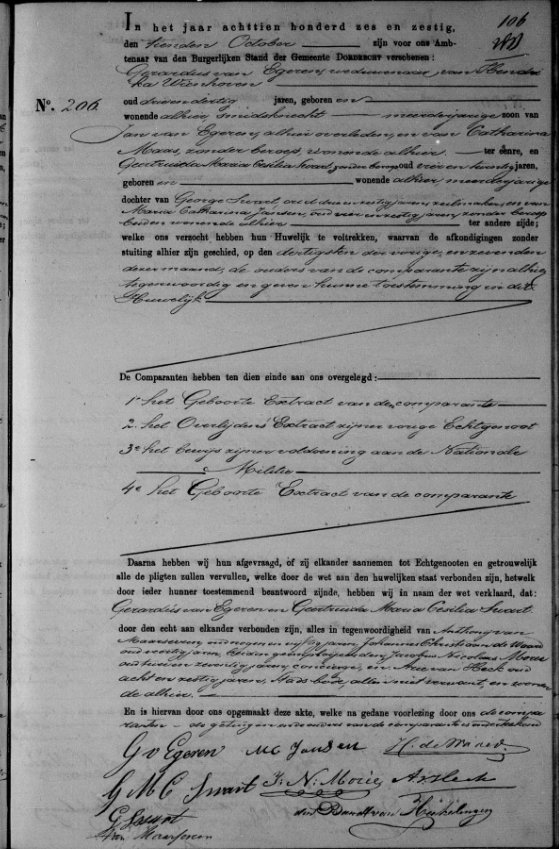 106
In het jaar achttien honderd zes en zestig,
den tienden October zijn voor ons Amb-
tenaar van den Burgerlijken Stand der Gemeente DORDRECHT verschenen:
Gerardus van Egeren, weduwenaar van Hendri
ka Wienhoven
No. 206
oud drie en dertig jaren, geboren en
wonende alhier, smidsknecht meerderjarige zoon van
Jan van Egeren, alhier overleden, en van Catharina
Maas, zonder beroep, wonende alhier, ter eenre, en
Geertruida Maria Cecilia Swart, zonder beroep oud jaren,
geboren en wonende alhier, meerderjarige
dochter van George Swart, oud jaren, en van
Maria Catharina Jansen, oud jaren, zonder beroep
beiden wonende alhier ter andere zijde;
welke ons verzocht hebben hun Huwelijk te voltrekken, waarvan de afkondigingen zonder
stuiting alhier zijn geschied, op den dertigsten der vorige, en zevenden
dezer maand, de ouders van de comparante zijn alhier
tegenwoordig en geven hunne toestemming in dit
Huwelijk
De Comparanten hebben ten dien einde aan ons overgelegd:
1e het Geboorte Extract van den comparant
2. het Overlijdens Extract zijner vorige Echtgenoot
3e het bewijs zijner voldoening aan de Nationale
Militie
4e het Geboorte Extract van de comparante
Daarna hebben wij hun afgevraagd, of zij elkander aannemen tot Echtgenooten en getrouwelijk
alle de pligten zullen vervullen, welke door de wet aan den huwelijken staat verbonden zijn, hetwelk
door ieder hunner toestemmend beantwoord zijnde, hebben wij in naam der wet verklaard, dat:
Gerardus van Egeren en Geertruida Maria Cecilia Swart
door den echt aan elkander verbonden zijn, alles in tegenwoordigheid van Anthony van
Maarseveen, oud jaren, Johannes Christiaan de Waard
oud veertig jaren, Jacobus Nicolaas Morie
oud zeventig jaren, concierge, en Arie van Heck oud
acht en zestig jaren, Stadsbode, allen niet verwant, en wonen
de alhier.
En is hiervan door ons opgemaakt deze akte, welke na gedane voorlezing door ons de compa
ranten de getuigen en de ouders van de comparante is onderteekend
G v Egeren MC Jansen de Waard
G M C Swart J. N. Morie A v Heck
G Swart
van Maarseveen